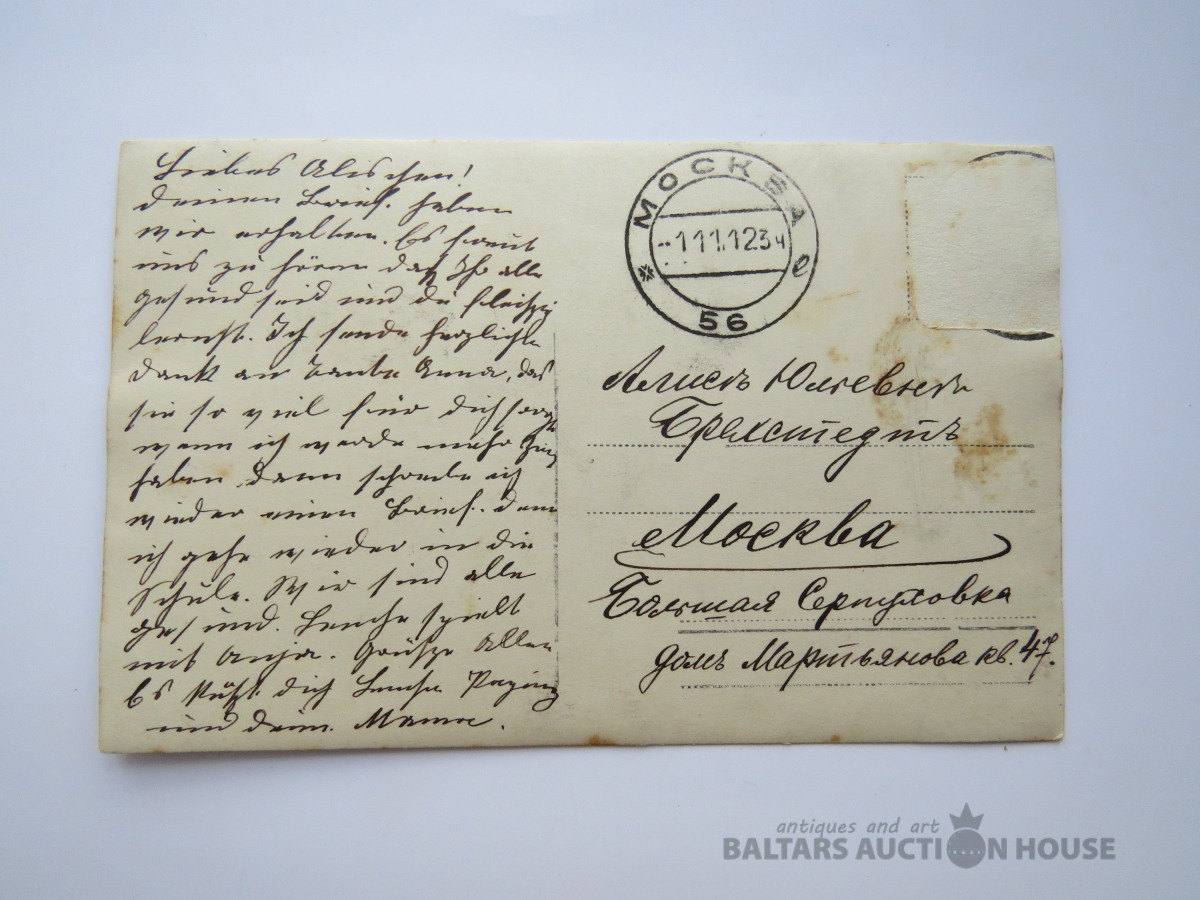 Liebes Alischen!
deinen Brief. haben
wir erhalten. Es freut
uns zu hören daß Ihr alle
gesund seid und du fleißig
lernst. Ich sende herzlichste
Dank an Tante Anna, das
sie so viel für dich sorgt
wenn ich werde mehr Zeit
haben dann schreibe ich
wieder einen Brief. denn
ich gehe wieder in die
Schule. Wir sind alle
gesund. spielt
mit Anja. Grüße Allen
Es küßt dich
und deine Mama.
МОСКВА
-1 11.12 3 ч
* 56 е
Алисѣ Юльевнѣ
Брехстедтъ
Москва
Большая Серпуховка
домъ Мартьянова кв. 47.
antiques and art
BALTARS AUCTION HOUSE